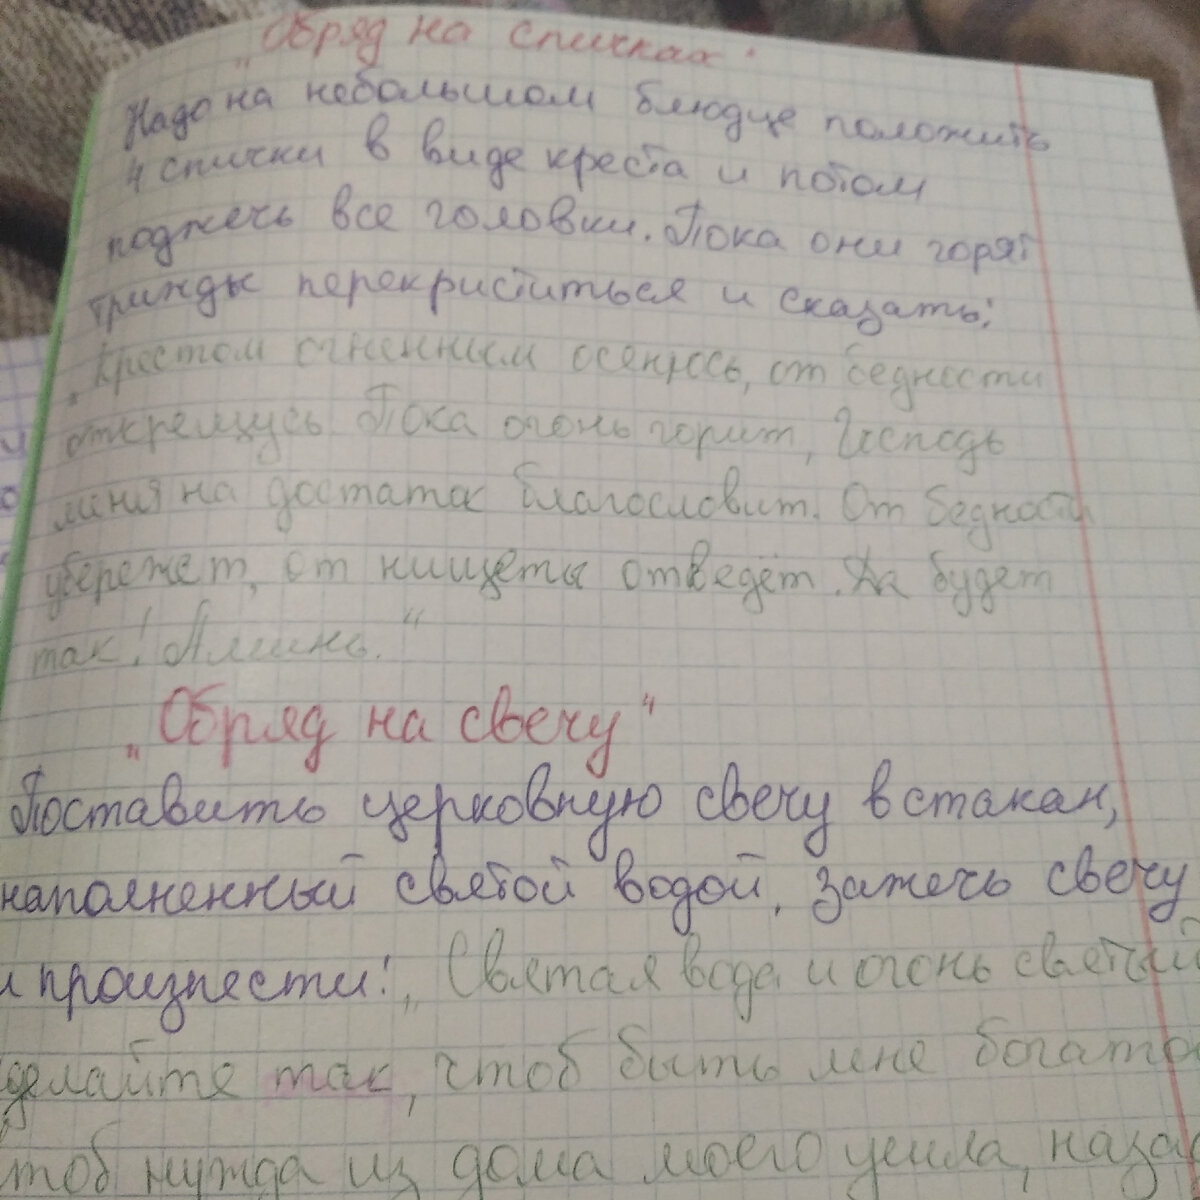 „Обряд на спичках"
Надо на небольшом блюдце положить
4 спички в виде креста и потом
поджечь все головки. Пока они горят
трижды перекриститься и сказать:
„Крестом огненным осенюсь, от бедности
открещусь. Пока огонь горит, Господь
меня на достаток благословит. От бедности
убережет, от нищеты отведёт. Да будет
так! Аминь."
„Обряд на свечу"
Поставить церковную свечу в стакан,
наполненный святой водой, зажечь свечу
и произнести: „Святая вода и огонь святый
делайте так, чтоб быть мне богато
чтоб нужда из дома моего ушла, наза